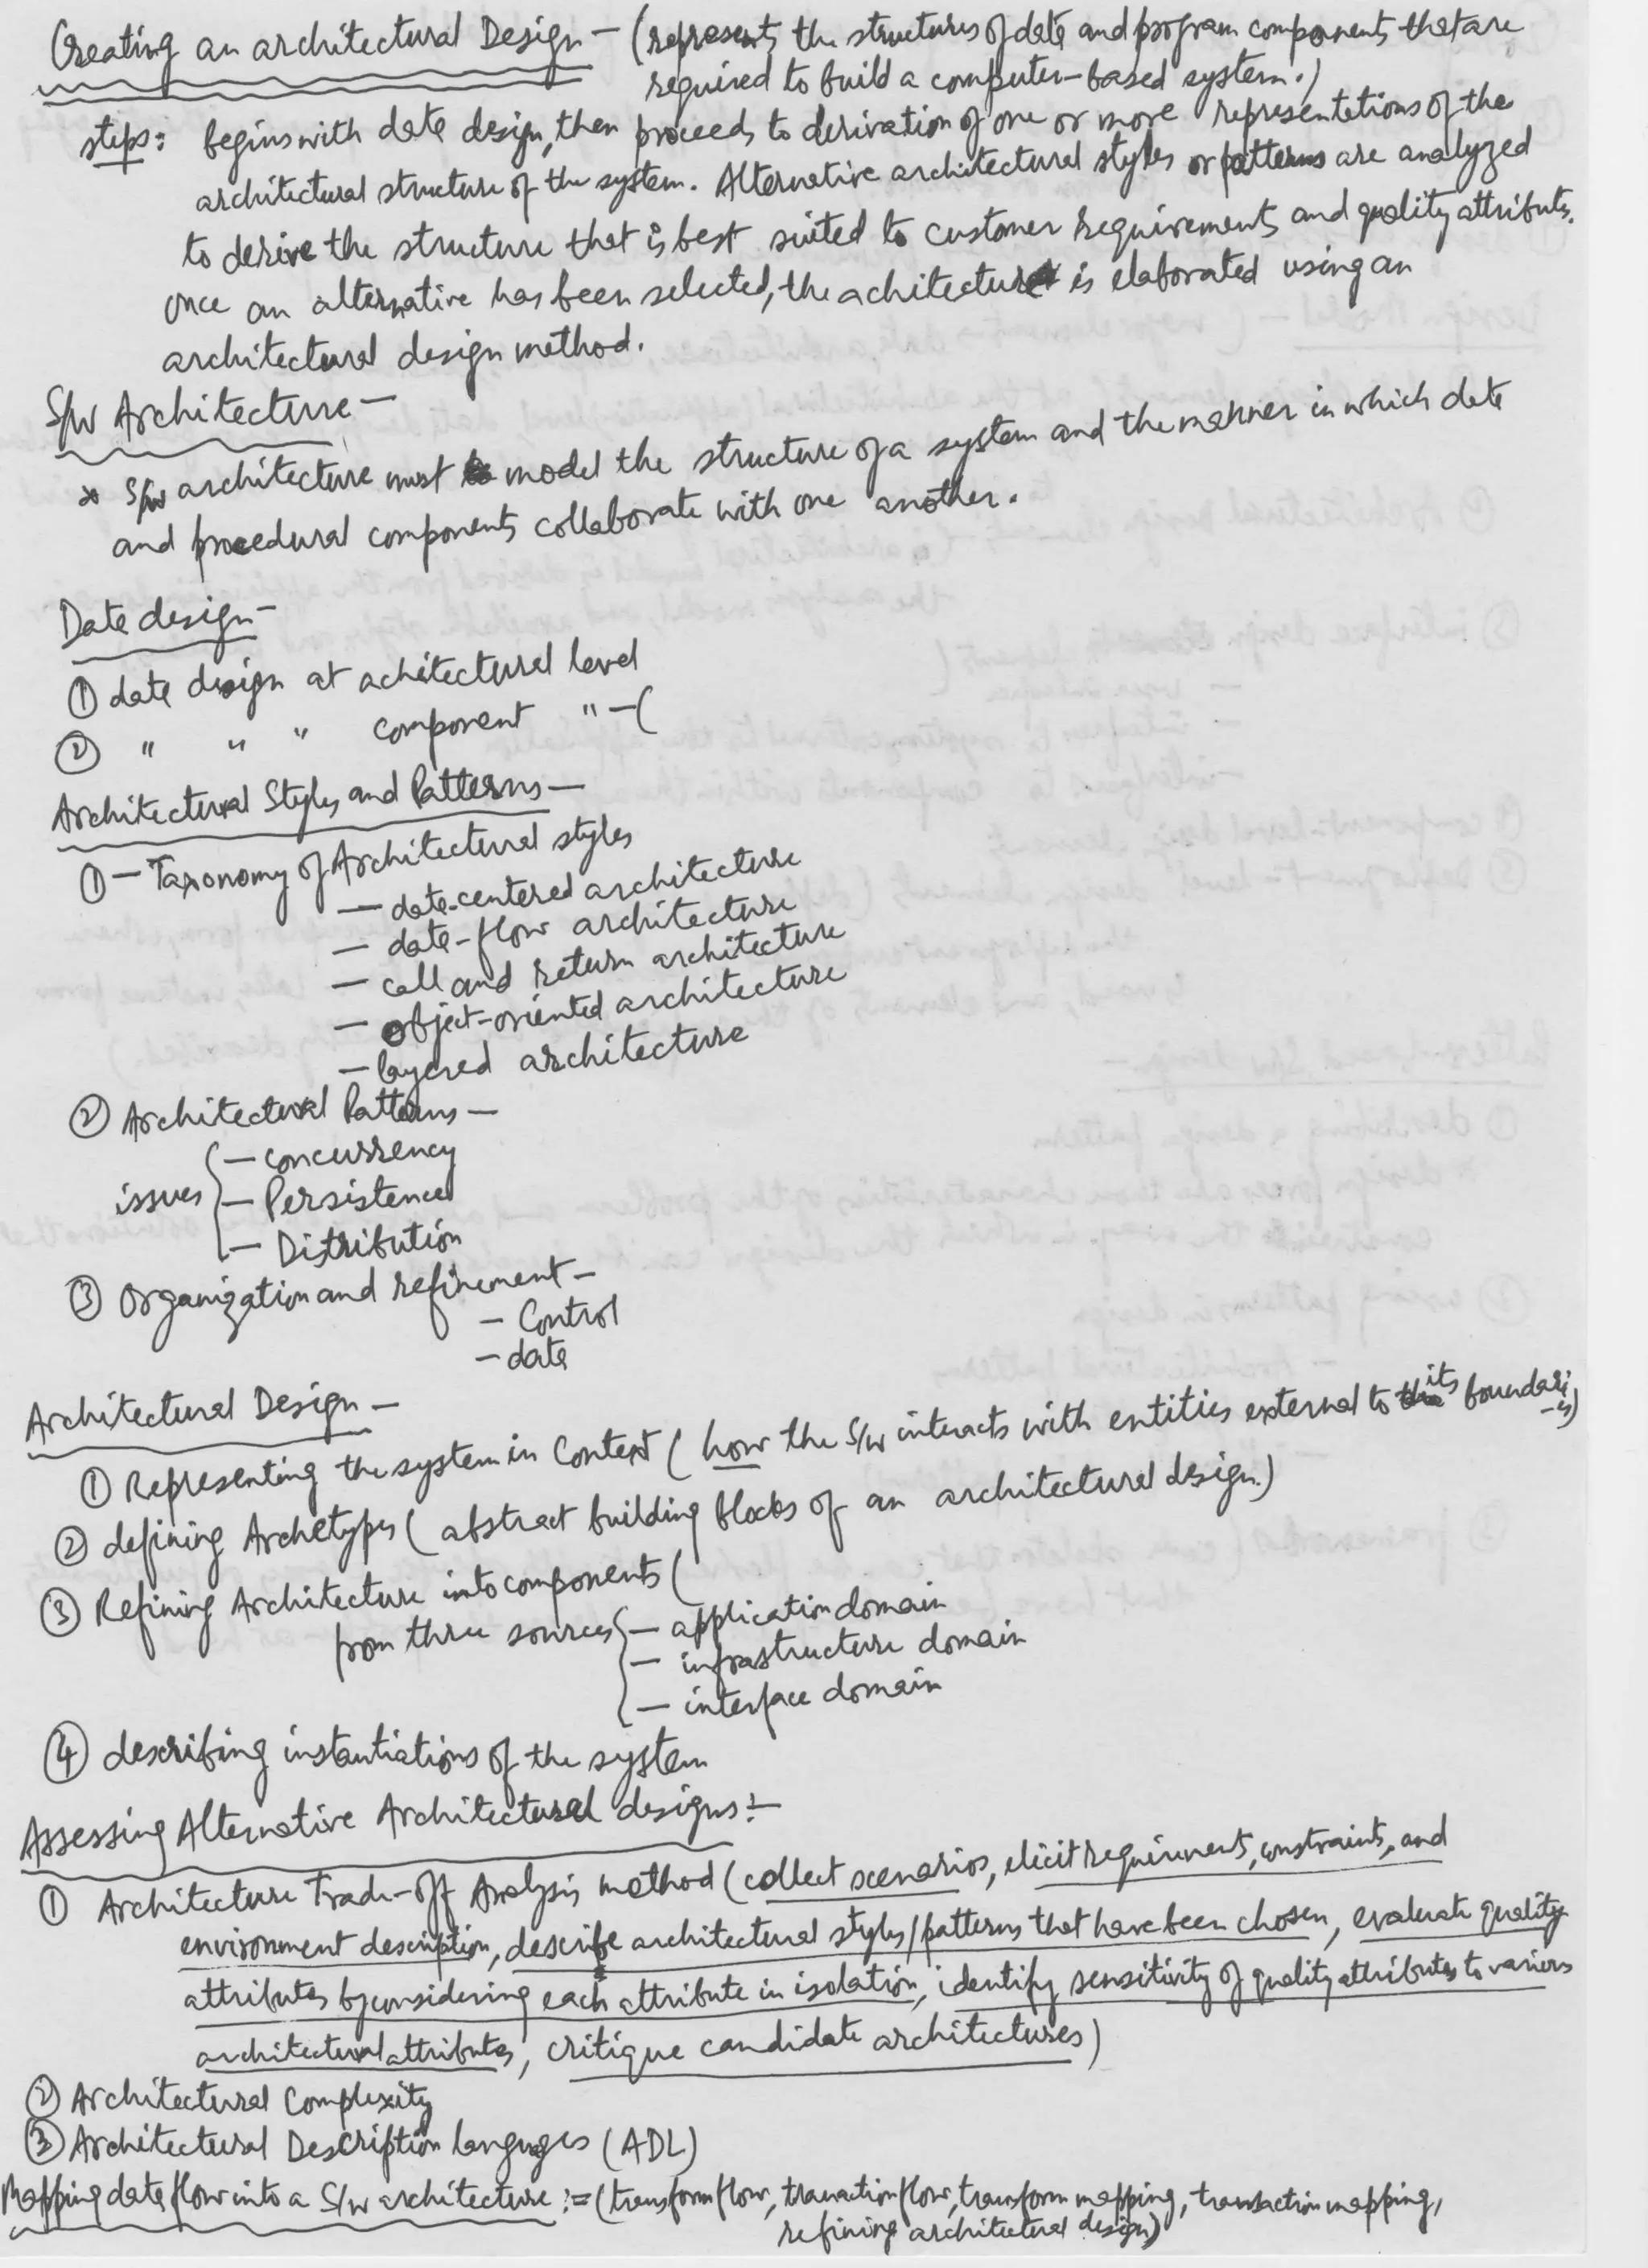 Creating an architectural Design — (represents the structures of data and program components that are
required to build a computer-based system.)
steps: begins with data design, then proceeds to derivation of one or more representations of the
architectural structure of the system. Alternative architectural styles or patterns are analyzed
to derive the structure that is best suited to customer requirements and quality attributes.
Once an alternative has been selected, the achitecture is elaborated using an
architectural design method.
S/W Architecture —
* S/W architecture must model the structure of a system and the manner in which data
and procedural components collaborate with one another.
Data design —
① data design at achitectural level
② " " " component " —(
Architectural Styles and Patterns —
① — Taxonomy of Architectural styles
— data-centered architecture
— data-flow architecture
— call and return architecture
— object-oriented architecture
— layered architecture
② Architectural Patterns —
issues { — concurrency
— Persistence
— Distribution
③ Organization and refinement —
— Control
— data
Architectural Design —
① Representing the system in Context (how the S/W interacts with entities external to its boundaries)
② defining Archetypes (abstract building blocks of an architectural design.)
③ Refining Architecture into components (
from three sources { — application domain
— infrastructure domain
— interface domain
④ describing instantiations of the system
Assessing Alternative Architectural designs:—
① Architecture Trade-off Analysis method (collect scenarios, elicit requirements, constraints, and
environment description, describe architectural styles/patterns that have been chosen, evaluate quality
attributes by considering each attribute in isolation, identify sensitivity of quality attributes to various
architectural attributes, critique candidate architectures)
② Architectural Complexity
③ Architectural Description languages (ADL)
Mapping data flow into a S/W architecture := (transform flow, transaction flow, transform mapping, transaction mapping,
refining architectural design)